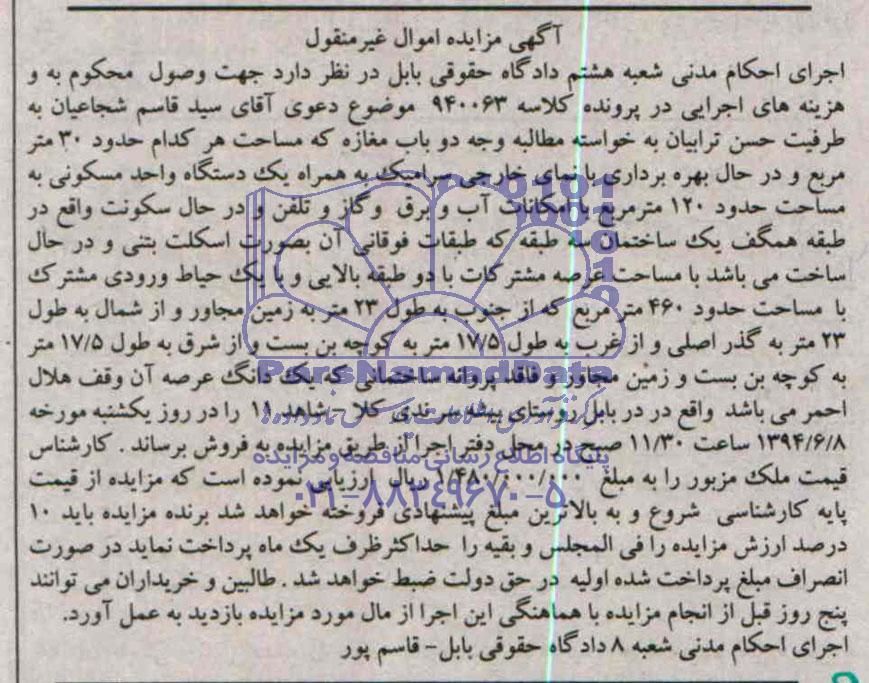 آگهی مزایده اموال غیرمنقول
اجرای احکام مدنی شعبه هشتم دادگاه حقوقی بابل در نظر دارد جهت وصول محکوم به و
هزینه های اجرایی در پرونده کلاسه ۹۴۰۰۶۳ موضوع دعوی آقای سید قاسم شجاعیان به
طرفیت حسن ترابیان به خواسته مطالبه وجه دو باب مغازه که مساحت هر کدام حدود ۳۰ متر
مربع و در حال بهره برداری با نمای خارجی سرامیک به همراه یک دستگاه واحد مسکونی به
مساحت حدود ۱۲۰ مترمربع با امکانات آب و برق و گاز و تلفن و در حال سکونت واقع در
طبقه همکف یک ساختمان سه طبقه که طبقات فوقانی آن بصورت اسکلت بتنی و در حال
ساخت می باشد با مساحت عرصه مشترکات با دو طبقه بالایی و با یک حیاط ورودی مشترک
با مساحت حدود ۴۶۰ متر مربع که از جنوب به طول ۲۳ متر به زمین مجاور و از شمال به طول
۲۳ متر به گذر اصلی و از غرب به طول ۱۷/۵ متر به کوچه بن بست و از شرق به طول ۱۷/۵ متر
به کوچه بن بست و زمین مجاور و فاقد پروانه ساختمانی که یک دانگ عرصه آن وقف هلال
احمر می باشد واقع در در بابل روستای بیشه سرندی کلا - شاهد ۱۱ را در روز یکشنبه مورخه
۱۳۹۴/۶/۸ ساعت ۱۱/۳۰ صبح در محل دفتر اجرا از طریق مزایده به فروش برساند . کارشناس
قیمت ملک مزبور را به مبلغ ۱/۴۸۰/۰۰۰/۰۰۰ ریال ارزیابی نموده است که مزایده از قیمت
پایه کارشناسی شروع و به بالاترین مبلغ پیشنهادی فروخته خواهد شد برنده مزایده باید ۱۰
درصد ارزش مزایده را فی المجلس و بقیه را حداکثر ظرف یک ماه پرداخت نماید در صورت
انصراف مبلغ پرداخت شده اولیه در حق دولت ضبط خواهد شد . طالبین و خریداران می توانند
پنج روز قبل از انجام مزایده با هماهنگی این اجرا از مال مورد مزایده بازدید به عمل آورد.
اجرای احکام مدنی شعبه ۸ دادگاه حقوقی بابل - قاسم پور
ParsNamadData
پایگاه اطلاع رسانی مناقصه و مزایده
۰۲۱-۸۸۳۴۹۶۷۰-۵